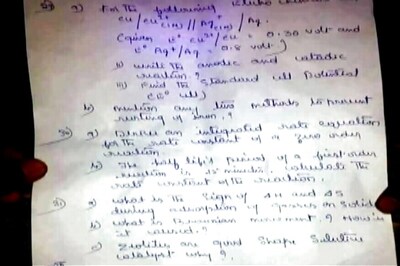 29) a) For the following
Cu/Cu²⁺(1M) // Ag⁺(1M) / Ag.
Given E° Cu²⁺/Cu = 0.30 volt and
E° Ag⁺/Ag = 0.8 volt)
i) write the anodic and catodic
reaction.?
ii) Find the Standard cell Potential
(E° cell)
b) mention any two methods to prevent
rusting of iron.?
30) a) Derive an integrated rate equation
for the rate constant of a zero order
reaction
b) The half life period of a first order
reaction is 15 minutes. calculate the
rate constant of the reaction.
31) a) what is the sign of ΔH and ΔS
during adsorption of gases on Solid
b) what is Brownian movement.? How is
it caused.?
c) Zeolites are good Shape Selective
catalyst why?